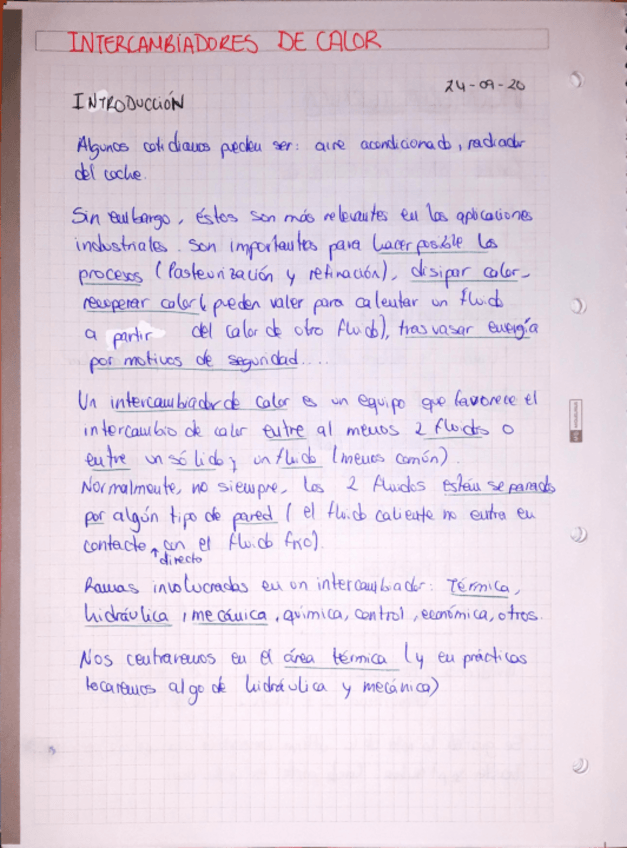 INTERCAMBIADORES DE CALOR
24-09-20
INTRODUCCIÓN
Algunos cotidianos pueden ser: aire acondicionado, radiador
del coche.
Sin embargo, éstos son más relevantes en las aplicaciones
industriales. Son importantes para hacer posible los
procesos (Pasteurización y refinación), disipar calor,
recuperar calor (pueden valer para calentar un fluido
a partir del calor de otro fluido), trasvasar energía
por motivos de seguridad....
Un intercambiador de calor es un equipo que favorece el
intercambio de calor entre al menos 2 fluidos o
entre un sólido y un fluido (menos común).
Normalmente, no siempre, los 2 fluidos están separados
por algún tipo de pared (el fluido caliente no entra en
contacto directo con el fluido frío).
Ramas involucradas en un intercambiador: Térmica,
hidráulica, mecánica, química, control, económica, otros.
Nos centraremos en el área térmica (y en prácticas
tocaremos algo de hidráulica y mecánica)